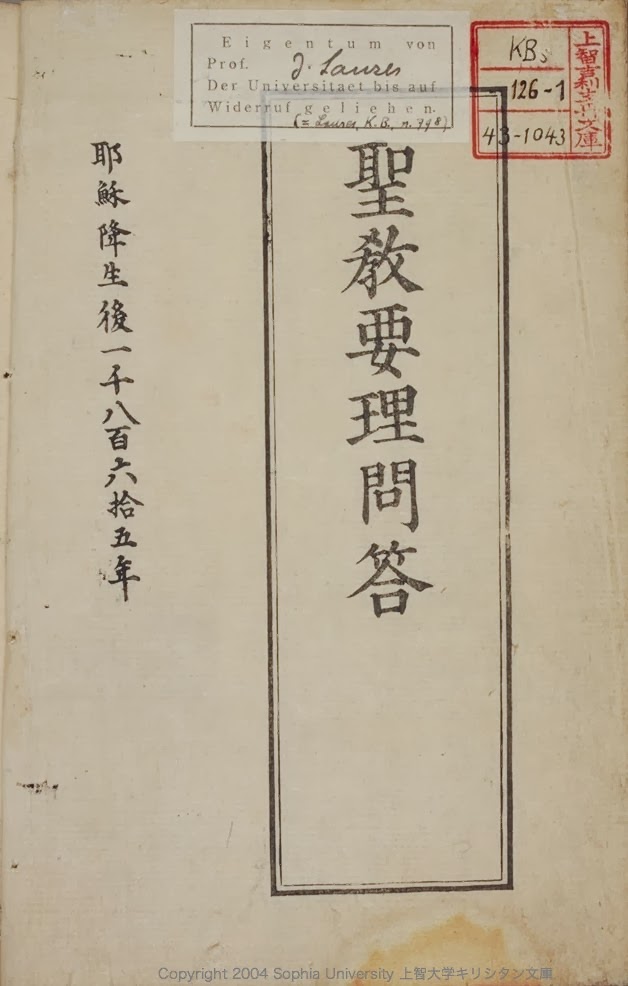 Eigentum von
Prof. J. Laures
Der Universitaet bis auf
Widerruf geliehen.
(= Laures, K.B., n. 998)
KB
126-1
43-1043
上智吉利支丹文庫
聖教要理問答
耶穌降生後一千八百六拾五年
Copyright 2004 Sophia University 上智大学キリシタン文庫